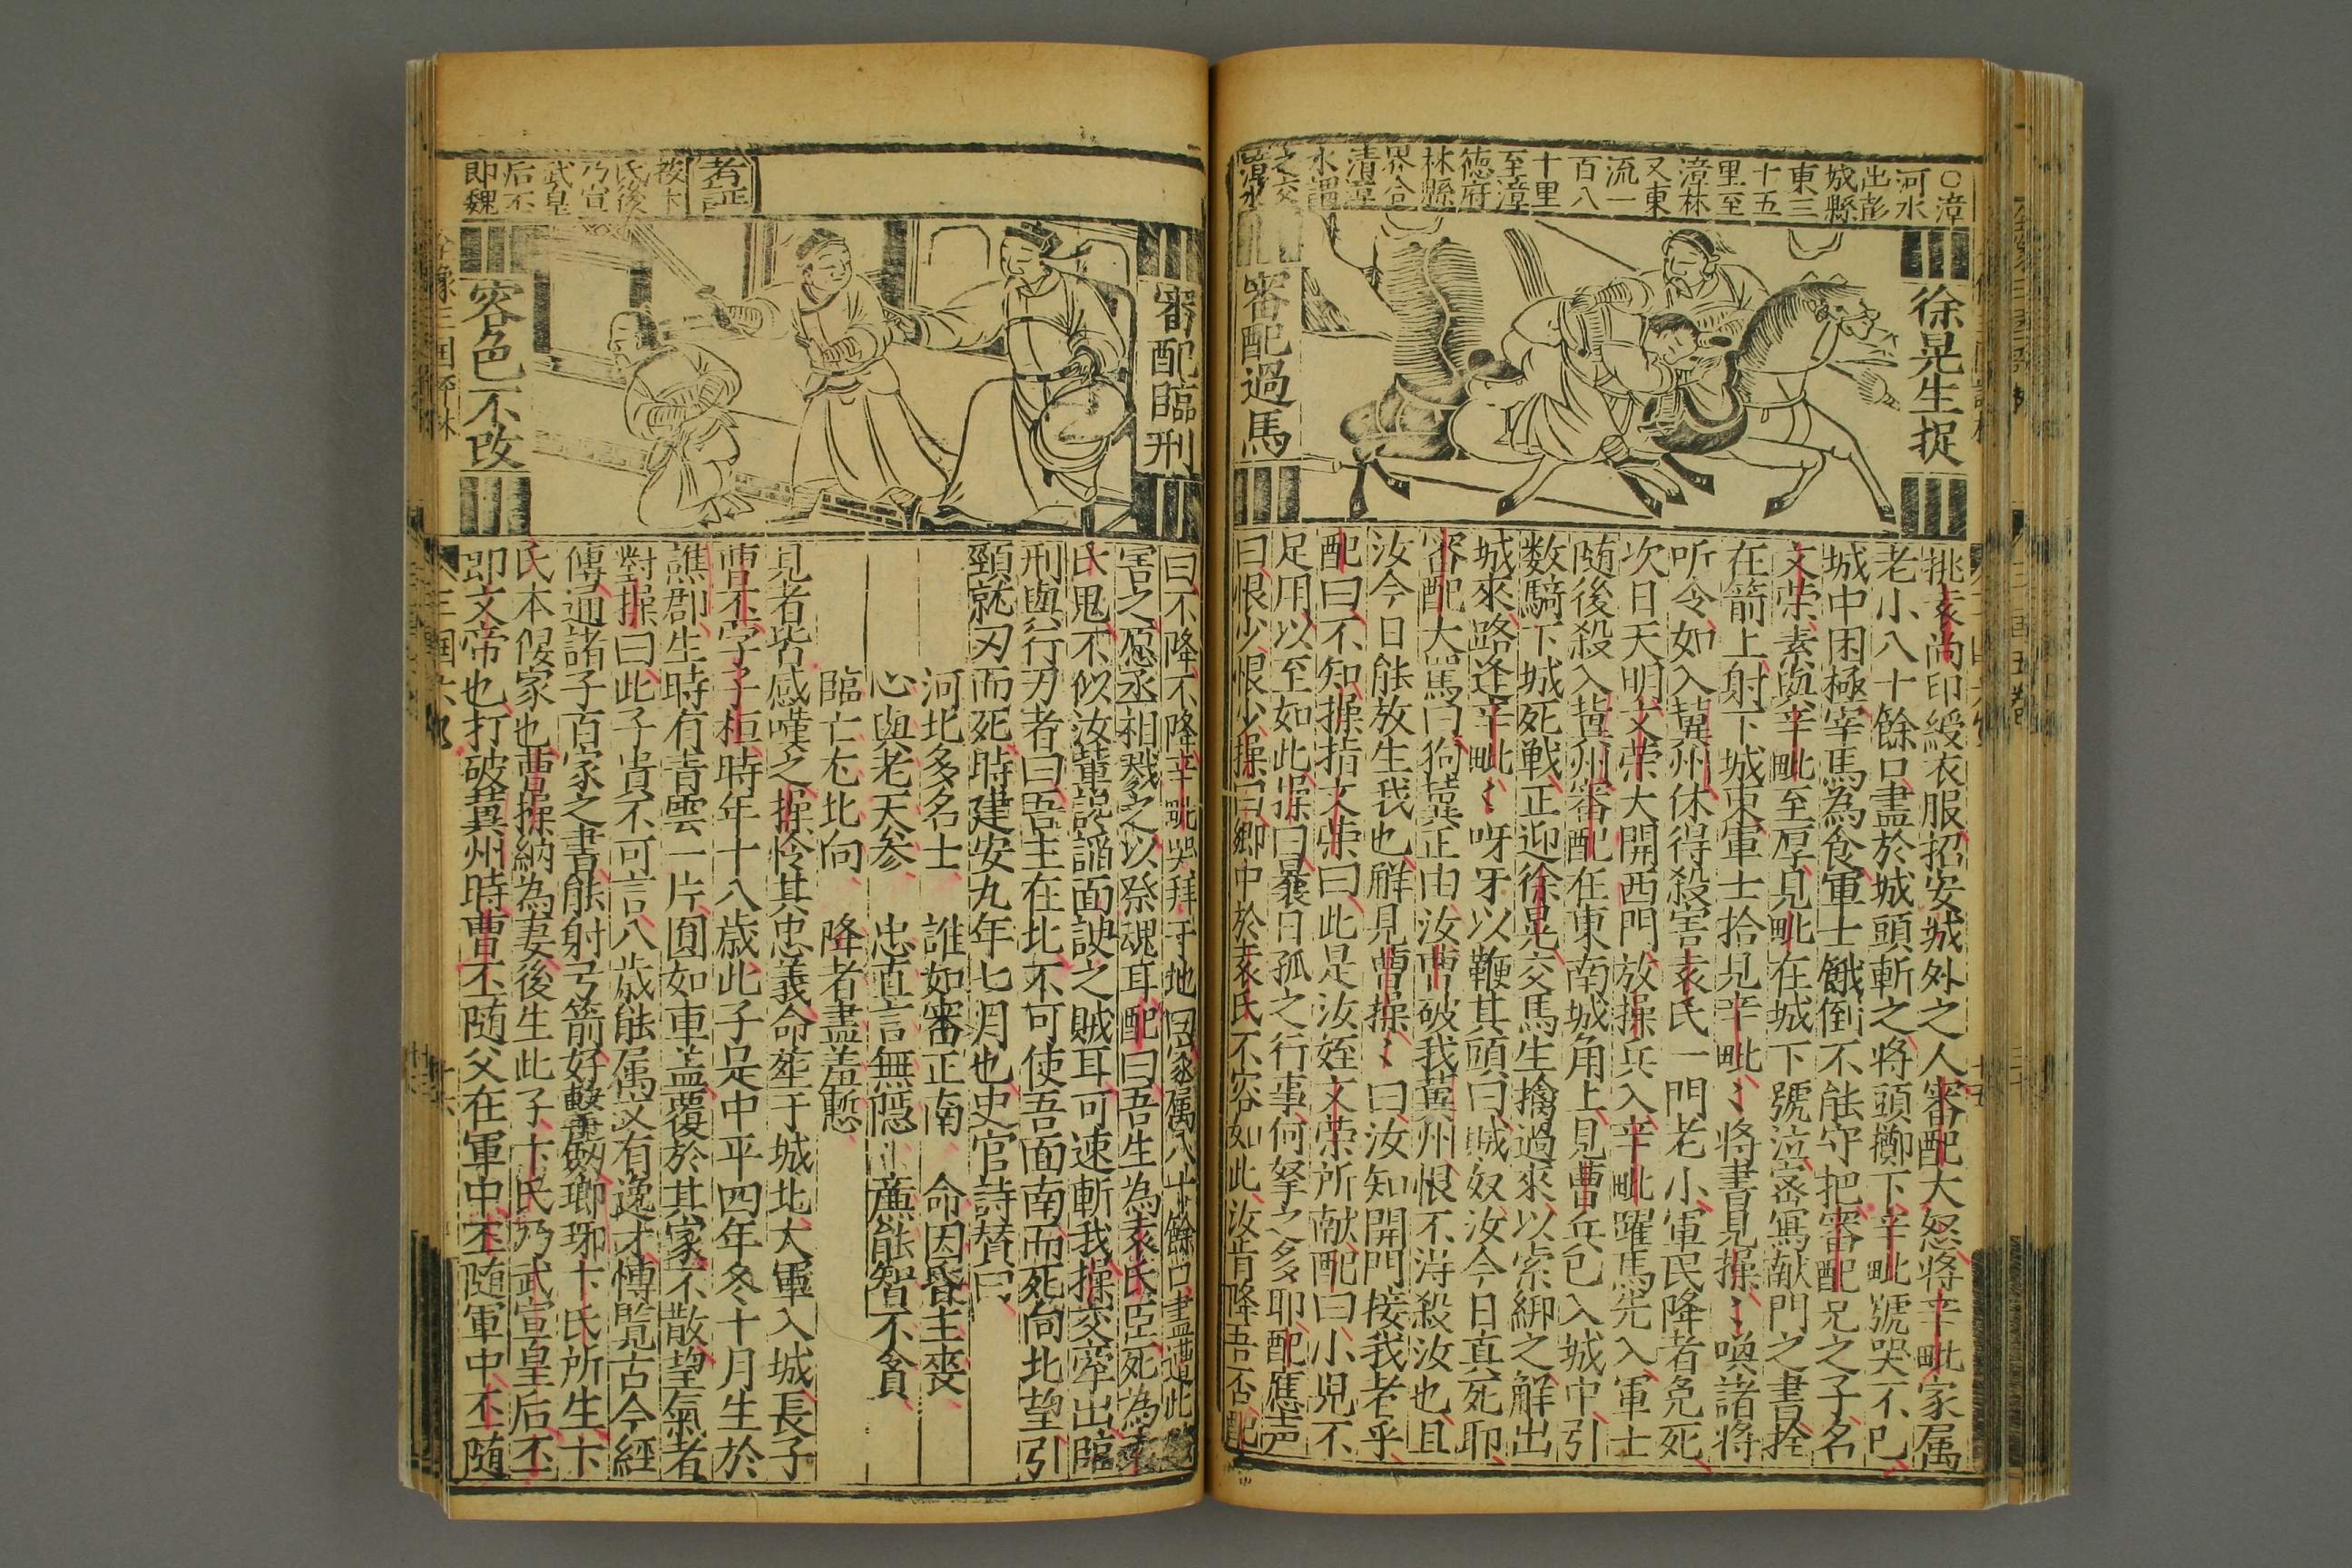 ○漳
河水
出彭
城縣
東三
十五
里至
漳林
又東
流一
百八
十里
至漳
德府
林縣
界合
清漳
水謂
之交
漳水
徐晃生捉
審配過馬
挑袁尚印綬衣服招安城外之人審配大怒將辛毗家属
老小八十餘口盡於城頭斬之将頭擲下辛毗號哭不已
城中困極宰馬為食軍士餓倒不能守把審配兄之子名
文荣素與辛毗至厚見毗在城下號泣密寫献門之書拴
在箭上射下城東軍士拾見辛毗〻将書見操〻喚諸將
听令如入冀州休得殺害袁氏一門老小軍民降者免死
次日天明文荣大開西門放操兵入辛毗躍馬先入軍士
随後殺入冀州審配在東南城角上見曹兵已入城中引
数騎下城死戦正迎徐晃交馬生擒過來以索綁之解出
城來路逢辛毗〻呀牙以鞭其頭曰賊奴汝今日真死耶
審配大罵曰狗輩正由汝曹破我冀州恨不淂殺汝也且
汝今日能放生我也觧見曹操〻曰汝知開門接我者乎
配曰不知操指文荣曰此是汝姪文荣所献配曰小児不
足用以至如此操曰曩日孤之行事何拏之多耶配應声
曰恨少恨少操曰卿中於袁氏不容如此汝肯降吾否配
考証
按卞
氏後
乃宣
武皇
后丕
即魏
審配臨刑
容色不改
曰不降不降辛毗哭拜于地曰家属八十餘口盡遭此
害之愿丞相戮之以祭魂耳配曰吾生為袁氏臣死為袁
氏鬼不似汝輩説謟面諛之賊耳可速斬我操交牽出臨
刑與行刃者曰吾主在北不可使吾面南而死向北望引
頸就刃而死時建安九年七月也史官詩賛曰
河北多名士 誰如審正南 命因昏主喪
心與老天参 忠直言無隱 廉能智不貪
臨亡尤北向 降者盡羞慙
見者皆感嘆之操怜其忠義命塟于城北大軍入城長子
曹丕字子桓時年十八歲此子是中平四年冬十月生於
譙郡生時有青雲一片圓如車盖覆於其家不散望氣者
對操曰此子貴不可言八歲能属文有逸才愽覧古今經
傳通諸子百家之書能射弓箭好擊劍瑯琊卞氏所生卞
氏本倡家也曹操納為妻後生此子卞氏乃武宣皇后丕
即文帝也打破冀州時曹丕随父在軍中丕随軍中丕随